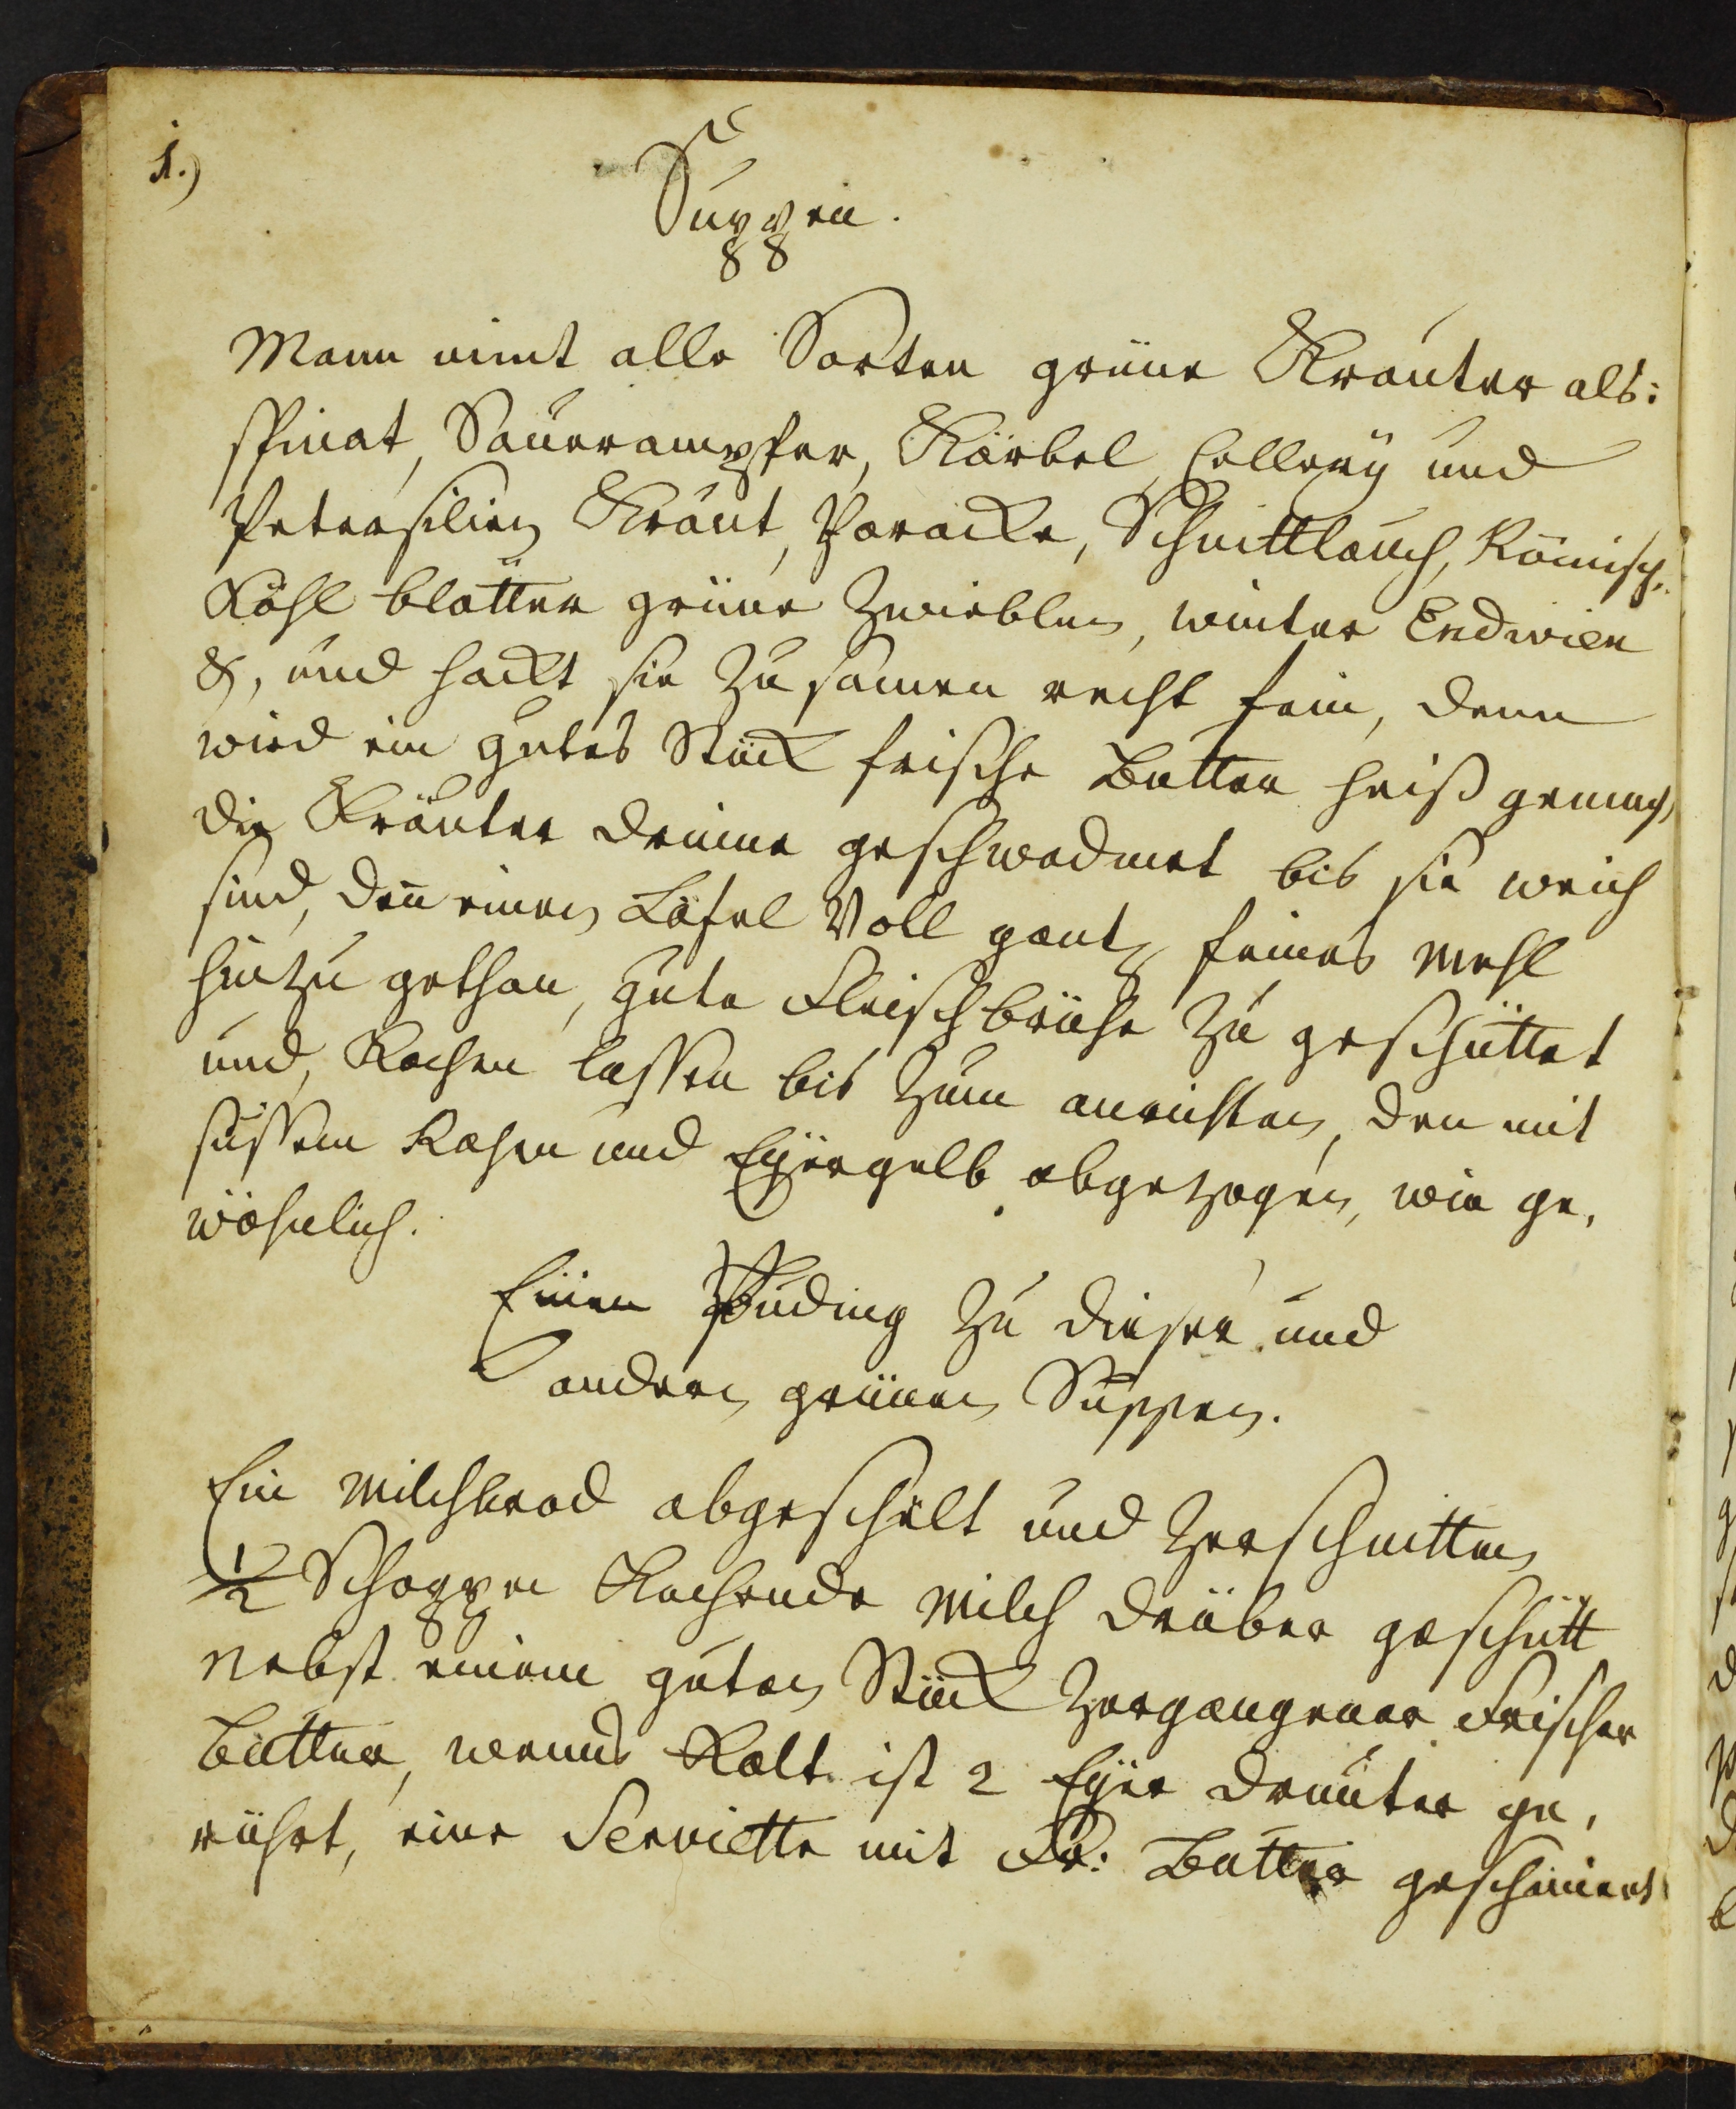 1.)
Suppen.
Mann nimt alle Sorten grüne Kräuter als:
spinat, Sauerampfer, Körbel, Cellery und
Petersilien Kraut, Paracke, Schnittlauch, Römisch.
Köhl blätter grüne Zwieblen, winter Endivien
&, und hackt sie Zusamen recht fein, denn
wird ein gutes Stück frische Butter heiß gemach
die Kräuter drinne geschwadmet bis sie weich
sind, den̄ einen Löfel Voll gantz feines Mehl
hinzu gethan, gute Fleischbrühe Zu geschüttet
und, Kochen lassen bis Zum anrichten, den mit
süssem Rahm und Eyergelb abgezogen, wie ge,
wöhnlich.
Einen Puding Zu dieser und
andern grünen Suppen.
Ein Milchbrod abgeschelt und Zerschnitten
1/2 Schoppen Kochende Milch drüber geschütt
Nebst einem guten Stück Zergangener Frischer
Butter, wenns Kalt ist 2 Eyer drunter ge,
rührt, eine Serviette mit Fr: Butter geschmiert